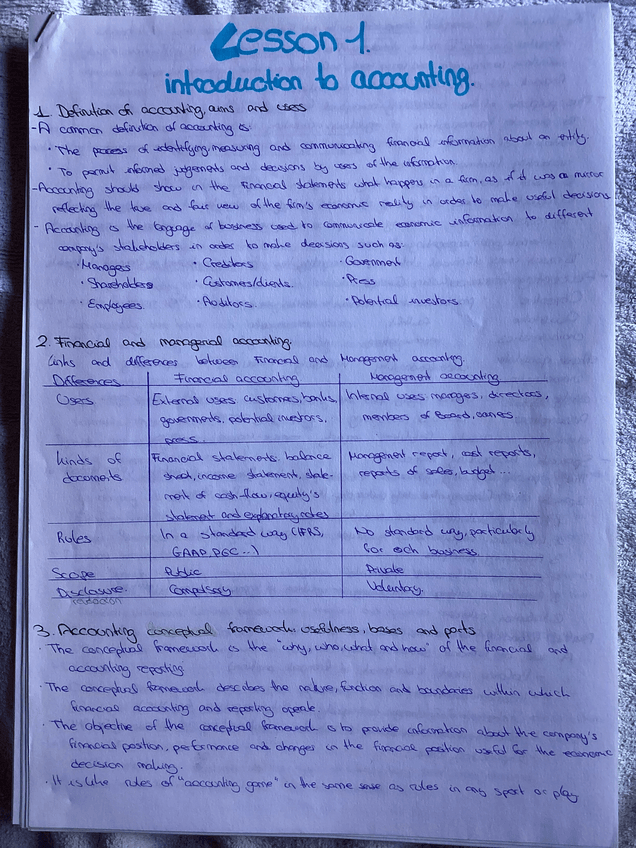 Lesson 1.
introduction to accounting.
1. Definition of accounting, aims and uses
-A common definition of accounting is:
· The process of identifying, measuring and communicating financial information about an entity.
· To permit informed judgements and decisions by users of the information.
-Accounting should show in the financial statements what happens in a firm, as if it was a mirror
reflecting the true and fair view of the firm's economic reality in order to make useful decisions
- Accounting is the language of business used to communicate economic information to different
company's stakeholders in order to make decisions such as:
· Managers · Creditors · Government
· Shareholders · Customers/clients. · Press
· Employees. · Auditors. · Potential investors.
2. Financial and managerial accounting.
Links and differences between Financial and Management accounting.
Differences Financial accounting Management accounting
Users External users customers, banks, Internal users managers, directors,
governments, potential investors, members of Board, owners.
press.
Kinds of Financial statements: balance Management report, cost reports,
documents sheet, income statement, state- reports of sales, budget ...
ment of cash-flow, equity's
statement and explanatory notes
Rules In a standard way (IFRS, No standard way, particularly
GAAP, PGC ...) for each business.
Scope Public Private
Disclosure. Compulsory. Voluntary.
3. Accounting conceptual framework: usefulness, bases and parts
· The conceptual framework is the "why, who, what and how" of the financial and
accounting reporting
· The conceptual framework describes the nature, function and boundaries within which
financial accounting and reporting operate.
· The objective of the conceptual framework is to provide information about the company's
financial position, performance and changes in the financial position useful for the economic
decision making.
· It is like rules of "accounting game" in the same sense as rules in any sport or play